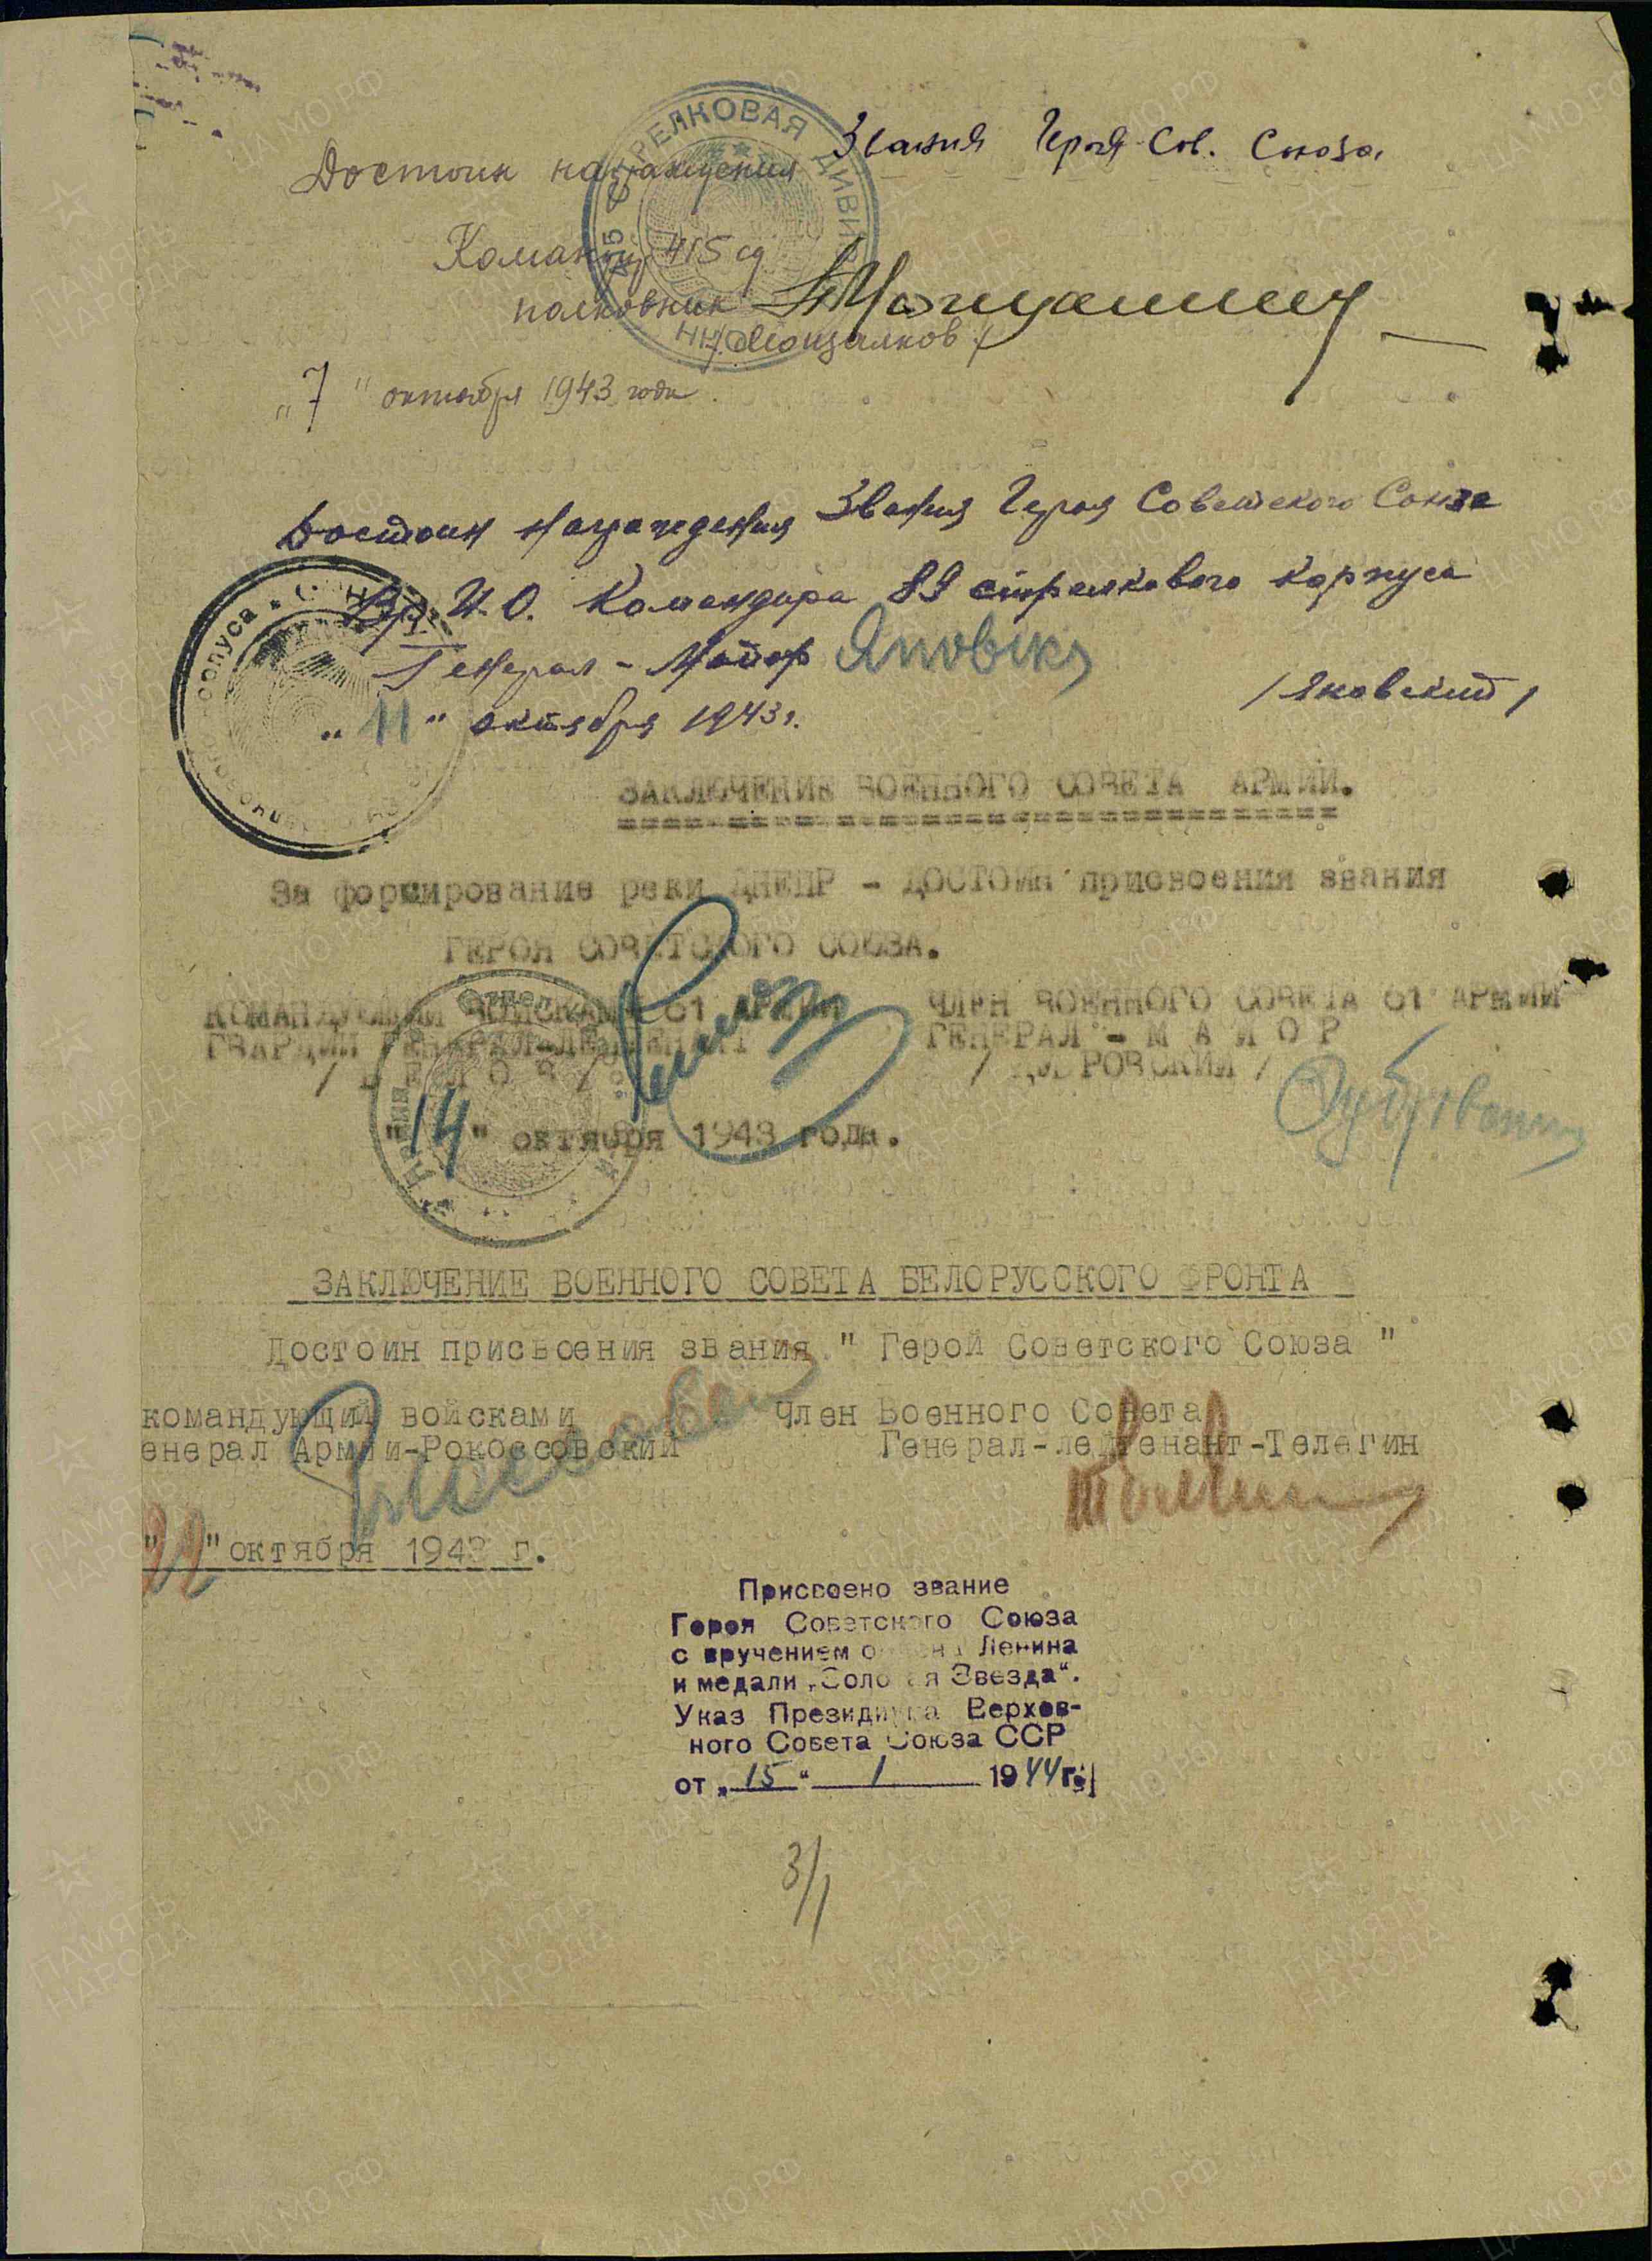 Достоин награждения Звания Героя Сов. Союза.
Командир 415 сд
полковник
/Мощалков/
"7" октября 1943 года.
СТРЕЛКОВАЯ ДИВИ
Достоин награждения Звания Героя Советского Союза
Вр. И.О. Командира 89 стрелкового корпуса
Генерал-Майор
/Яновский/
"11" октября 1943 г.
ЗАКЛЮЧЕНИЕ ВОЕННОГО СОВЕТА АРМИИ.
За формирование реки ДНЕПР - ДОСТОИН присвоения звания
ГЕРОЯ СОВЕТСКОГО СОЮЗА.
КОМАНДУЮЩИЙ ВОЙСКАМИ 61 АРМИИ
ГВАРДИИ ГЕНЕРАЛ-ЛЕЙТЕНАНТ
/ Б Е Л О В /
ЧЛЕН ВОЕННОГО СОВЕТА 61 АРМИИ
ГЕНЕРАЛ - М А Й О Р
/ ДУБРОВСКИЙ /
"14" октября 1943 года.
ЗАКЛЮЧЕНИЕ ВОЕННОГО СОВЕТА БЕЛОРУССКОГО ФРОНТА
Достоин присвоения звания " Герой Советского Союза "
командующий войсками
енерал Армии-Рокоссовский
Член Военного Совета
Генерал-лейтенант-Телегин
" " октября 1943 г.
Присвоено звание
Героя Советского Союза
с вручением ордена Ленина
и медали „Золотая Звезда“.
Указ Президиума Верхов-
ного Совета Союза ССР
от „15“ 1 1944 г.
3/1
ПАМЯТЬ НАРОДА
ЦА МО РФ